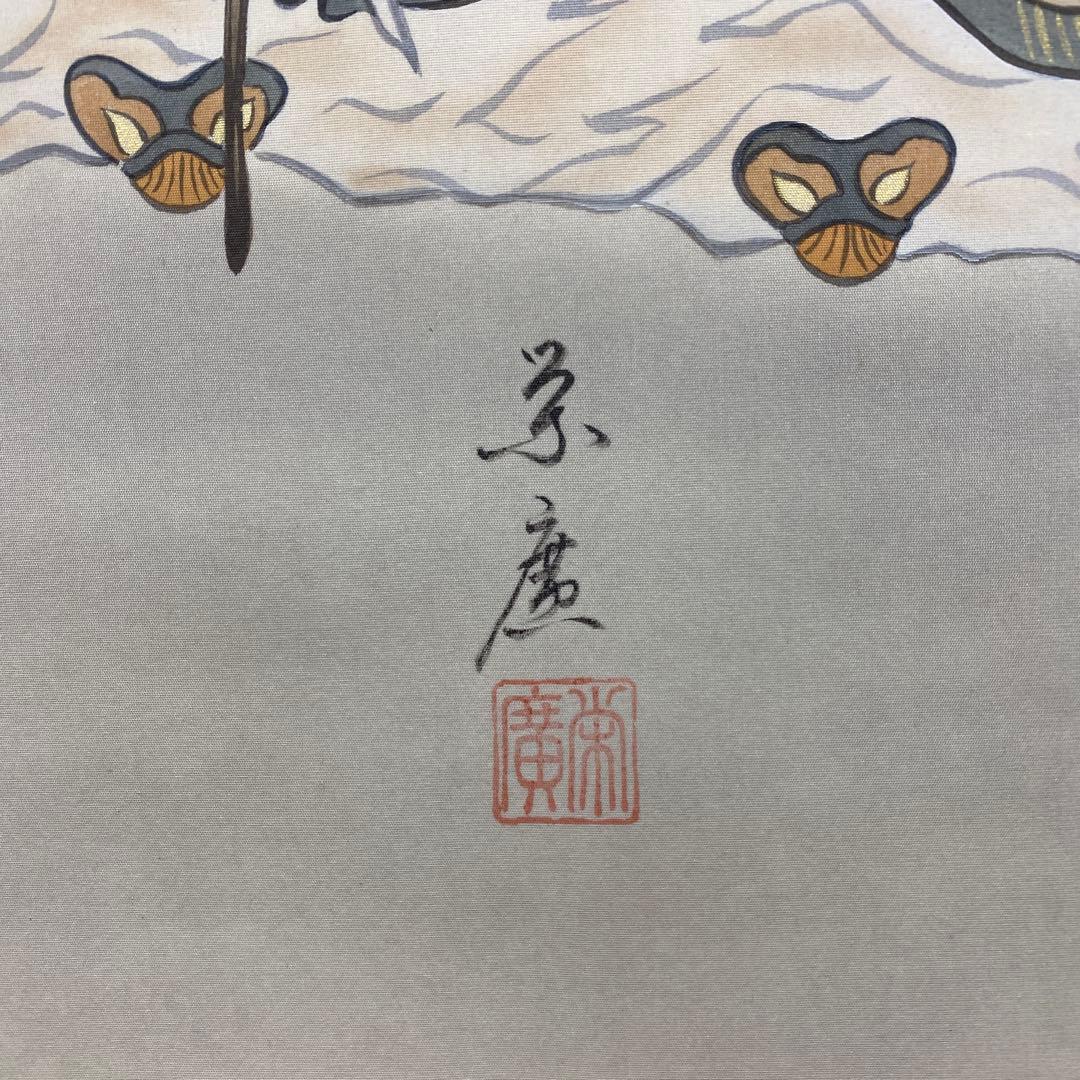 栄
廣
栄廣